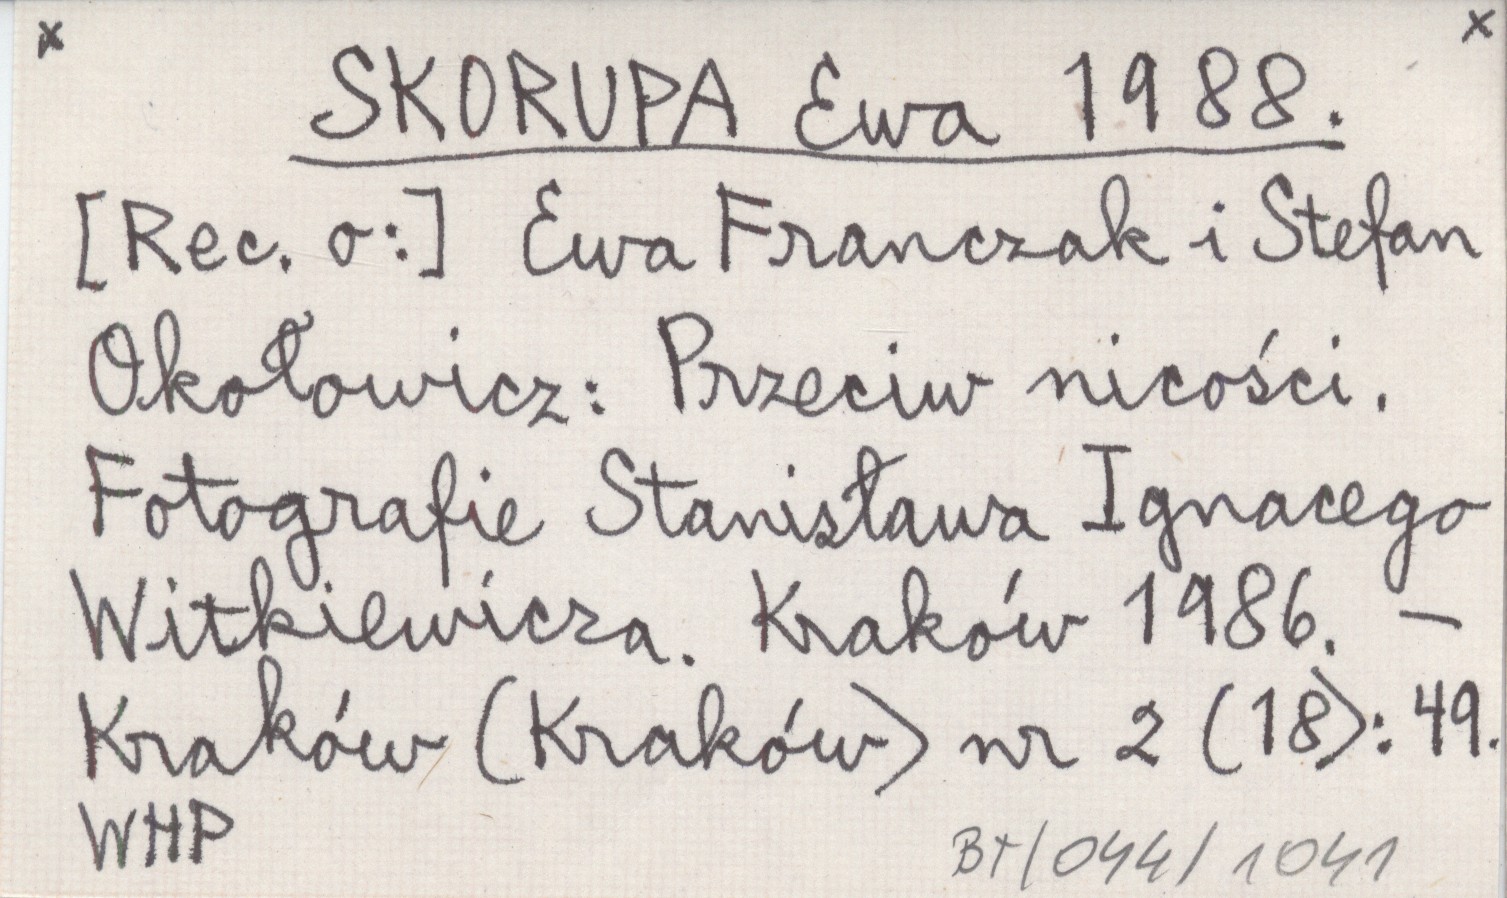 x x
SKORUPA Ewa 1988.
[Rec. o:] Ewa Franczak i Stefan
Okołowicz: Przeciw nicości.
Fotografie Stanisława Ignacego
Witkiewicza. Kraków 1986. —
Kraków (Kraków) nr 2 (18): 49.
WHP
BT/044/1041